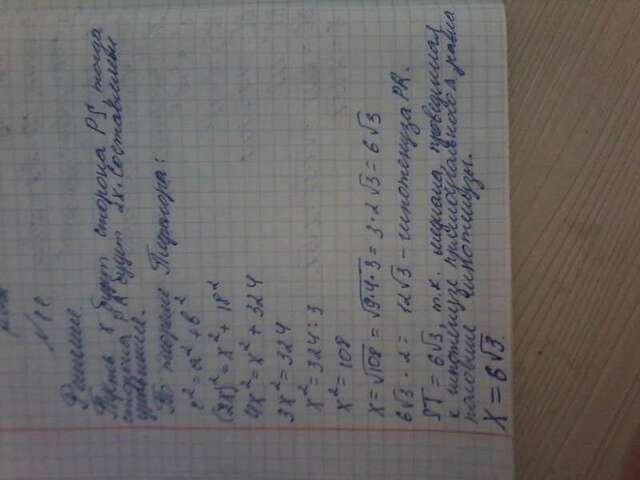 Решение
Пусть x будет сторона PS, тогда
сторона PR будет 2x. Составляем
уравнение.
По теореме Пифагора:
c² = a² + b²
(2x)² = x² + 18²
4x² = x² + 324
3x² = 324
x² = 324 : 3
x² = 108
x = √108 = √9·4·3 = 3·2√3 = 6√3
6√3 · 2 = 12√3 - гипотенуза PR.
ST = 6√3, т.к. медиана, проведенная
к гипотенузе прямоугольного Δ равна
половине гипотенузы.
X = 6√3.